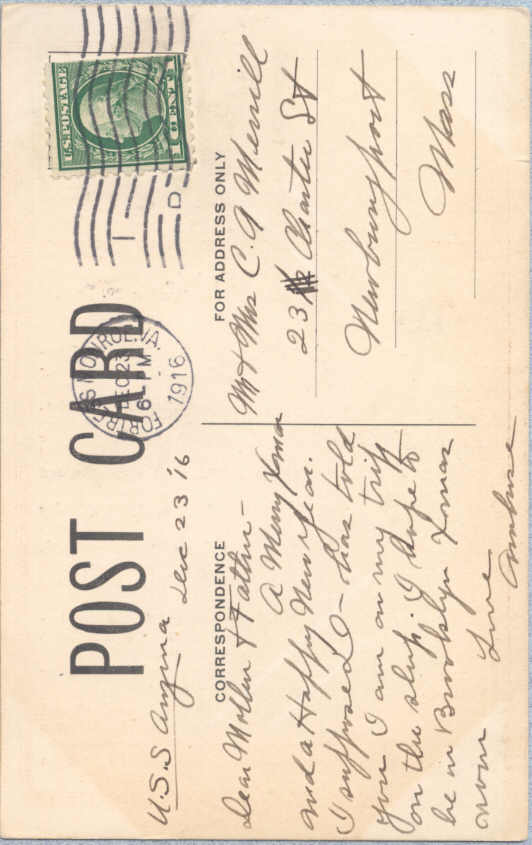 POST CARD
U.S. POSTAGE
1 CENT 1
FORTRESS MONROE, VA.
DEC 23
6 PM
1916
1 D
U.S.S Dec 23 '16
CORRESPONDENCE
FOR ADDRESS ONLY
Dear Mother & Father –
A Merry Xmas
and a Happy New year.
I suppose O– has told
you I am on my trip
on the ship. I hope to
be in Brooklyn Xmas
morn Love
Ambrose
Mr & Mrs C. A Merrill
23 Charter St
Newburyport
Mass